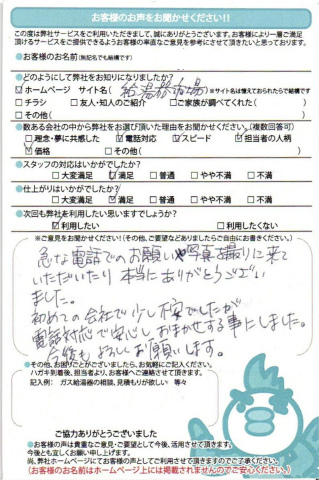 お客様のお声をお聞かせください!!
この度は弊社サービスをご利用いただきまして、誠にありがとうございます。お客様により一層ご満足
頂けるサービスをご提供できるようお客様の率直なご意見を参考にさせて頂きたいと思っております。
●お客様のお名前(無記名でも結構です)
●どのようにして弊社をお知りになりましたか?
☑ホームページ サイト名( 給湯器市場 )※サイト名は憶えておられたらで結構です
□チラシ □友人・知人のご紹介 □ご家族が調べてくれた( )
□その他( )
●数ある会社の中から弊社をお選び頂いた理由をお聞かせください。(複数回答可)
□理念・夢に共感した ☑電話対応 ☑スピード ☑担当者の人柄
☑価格 □その他( )
●スタッフの対応はいかがでしたか?
□大変満足 ☑満足 □普通 □やや不満 □不満
●仕上がりはいかがでしたか?
□大変満足 ☑満足 □普通 □やや不満 □不満
●次回も弊社を利用したい思いますでしょうか?
☑利用したい □利用したくない
※ご意見をお聞かせください!(その他、ご要望などありましたらご自由にお書きください。)
急な電話でのお願いや写真を撮りに来て
いただいたり 本当にありがとうござい
ました。
初めての会社で少し不安でしたが
電話対応で安心しおまかせする事にしました。
今後も よろしくお願いします。
●その他、お困りごとがございましたら、お気軽にご記入ください。
ハガキ到着後、担当者より、お客様へご連絡させて頂きます。
記入例: ガス給湯器の相談、見積もりが欲しい 等々
ご協力ありがとうございました
●お客様の声は貴重なご意見・ご要望として今後、活用させて頂きます。
今後とも宜しくお願い申し上げます。
尚、弊社ホームページにてお客様の声としてご利用させて頂きますのでご了承ください。
(お客様のお名前はホームページ上には掲載されませんのでご安心ください。)